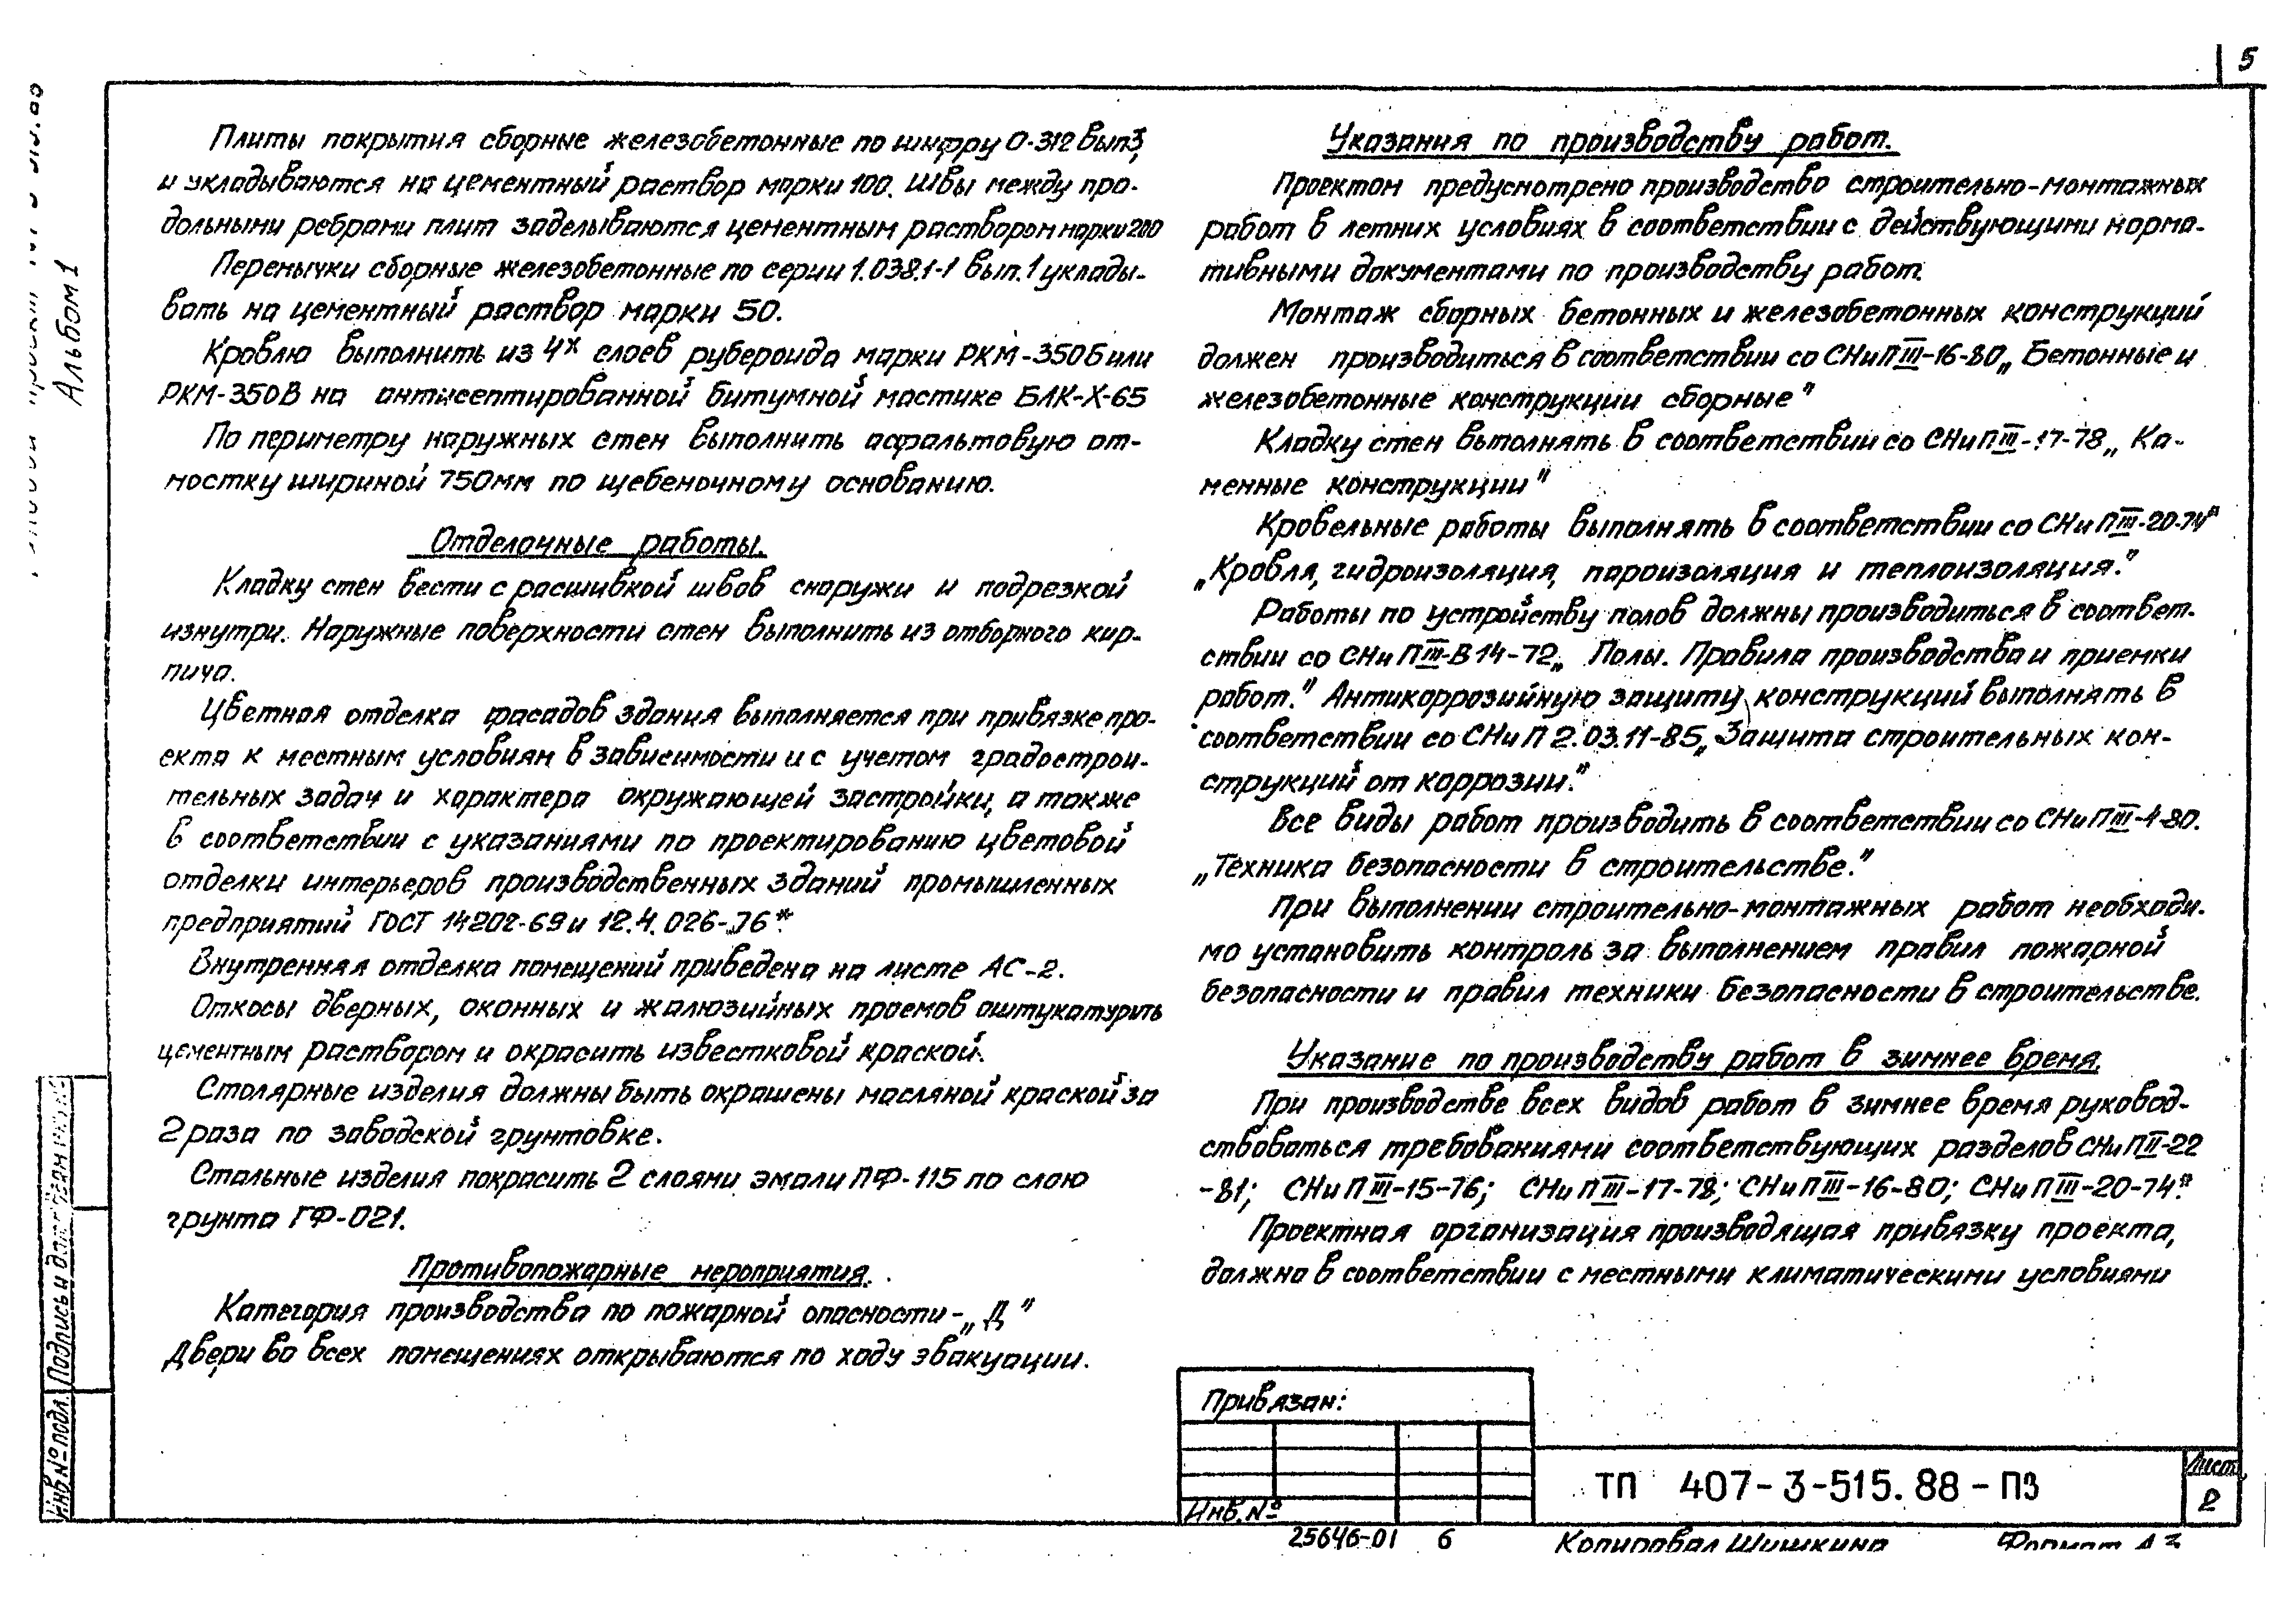 5
Альбом 1
Плиты покрытия сборные железобетонные по шифру 0-312 вып3,
и укладываются на цементный раствор марки 100. Швы между про-
дольными ребрами плит заделываются цементным раствором марки 200
Перемычки сборные железобетонные по серии 1.038.1-1 вып.1 уклады-
вать на цементный раствор марки 50.
Кровлю выполнить из 4х слоев рубероида марки РКМ-350Б или
РКМ-350В на антисептированной битумной мастике БЛК-Х-65
По периметру наружных стен выполнить асфальтовую от-
мостку шириной 750мм по щебеночному основанию.
Отделочные работы.
Кладку стен вести с расшивкой швов снаружи и подрезкой
изнутри. Наружные поверхности стен выполнить из отборного кир-
пича.
Цветная отделка фасадов здания выполняется при привязке про-
екта к местным условиям в зависимости и с учетом градострои-
тельных задач и характера окружающей застройки, а также
в соответствии с указаниями по проектированию цветовой
отделки интерьеров производственных зданий промышленных
предприятий ГОСТ 14202-69 и 12.4.026-76*.
Внутренняя отделка помещений приведена на листе АС-2.
Откосы дверных, оконных и жалюзийных проемов оштукатурить
цементным раствором и окрасить известковой краской.
Столярные изделия должны быть окрашены масляной краской за
2 раза по заводской грунтовке.
Стальные изделия покрасить 2 слоями эмали ПФ-115 по слою
грунта ГФ-021.
Противопожарные мероприятия.
Категория производства по пожарной опасности-„Д"
Двери во всех помещениях открываются по ходу эвакуации.
Указания по производству работ.
Проектом предусмотрено производство строительно-монтажных
работ в летних условиях в соответствии с действующими норма-
тивными документами по производству работ.
Монтаж сборных бетонных и железобетонных конструкций
должен производиться в соответствии со СНиП III-16-80„ Бетонные и
железобетонные конструкции сборные"
Кладку стен вьполнять в соответствии со СНиП III-17-78„ Ка-
менные конструкции"
Кровельные работы выполнять в соответствии со СНиП III-20-74*
„Кровля, гидроизоляция, пароизоляция и теплоизоляция."
Работы по устройству полов должны производиться в соответ-
ствии со СНиП III-В 14-72„ Полы. Правила производства и приемки
работ." Антикоррозийную защиту конструкций выполнять в
соответствии со СНиП 2.03.11-85„ Защита строительных кон-
струкций от каррозии."
Все виды работ производить в соответствии со СНиП III-4-80.
„Техника безопасности в строительстве."
При выполнении строительно-монтажных работ необходи-
мо установить контроль за выполнением правил пожарной
безопасности и правил техники безопасности в строительстве.
Указание по производству работ в зимнее время.
При производстве всех видов работ в зимнее время руковод-
ствоваться требованиями соответствующих разделов СНиП II-22
-81; СНиП III-15-76; СНиП III-17-78; СНиП III-16-80; СНиП III-20-74*.
Проектная организация производящая привязку проекта,
должна в соответствии с местными климатическими условиями
Привязан:
Инв.№
ТП 407-3-515.88-ПЗ
Лист
2
25646-01 6
Копировал Шишкина
Формат А3
Инв № подл.
Подпись и дата